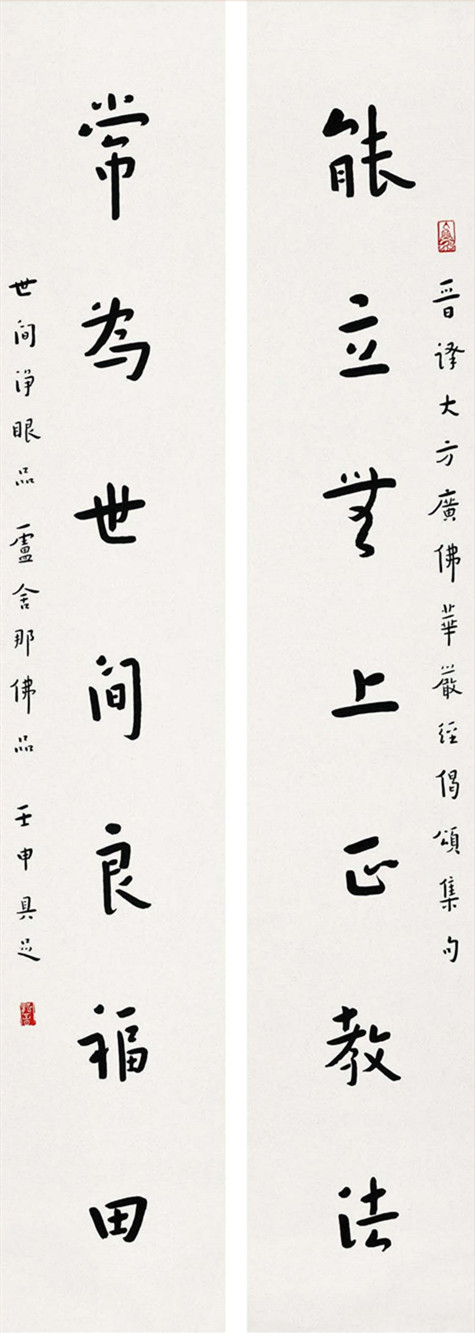 能立無上正教法
晋译大方廣佛華嚴經偈頌集句
常為世间良福田
世间净眼品 盧舍那佛品 壬申具足